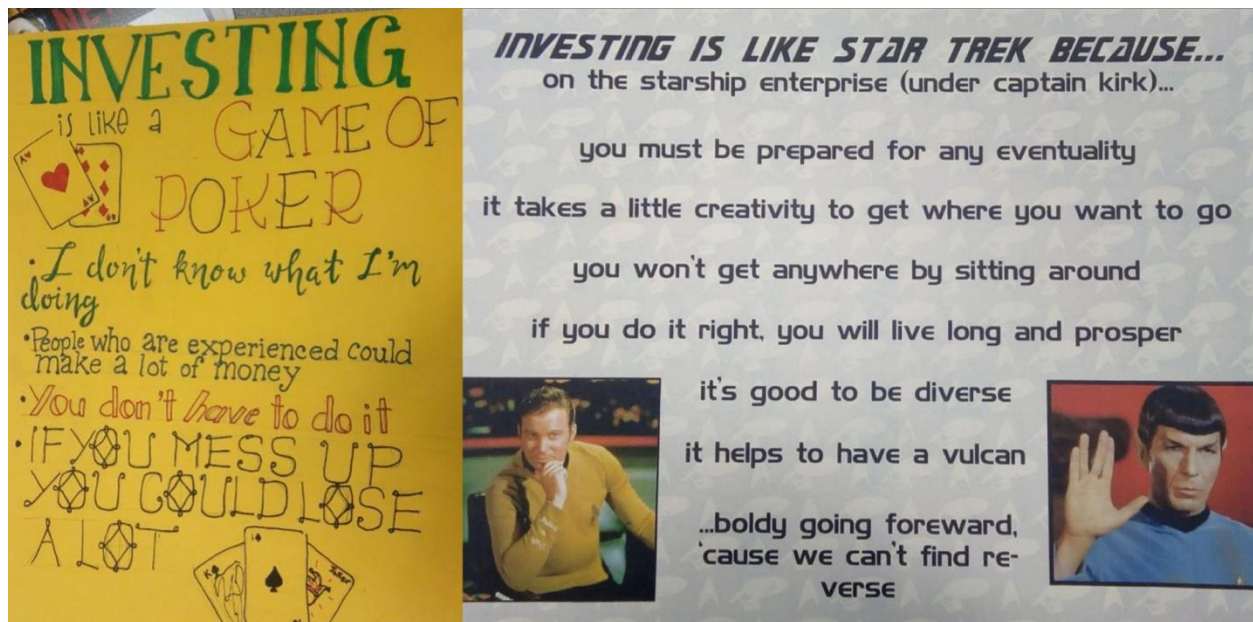 INVESTING
is like a GAME OF
POKER
• I don't know what I'm
doing
• People who are experienced could
make a lot of money
• You don't have to do it
• IF YOU MESS UP
YOU COULD LOSE
A LOT
INVESTING IS LIKE STAR TREK BECAUSE...
on the starship enterprise (under captain kirk)...
you must be prepared for any eventuality
it takes a little creativity to get where you want to go
you won't get anywhere by sitting around
if you do it right, you will live long and prosper
it's good to be diverse
it helps to have a vulcan
...boldy going foreward,
'cause we can't find re-
verse